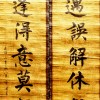 遇誤解休
逢得意莫